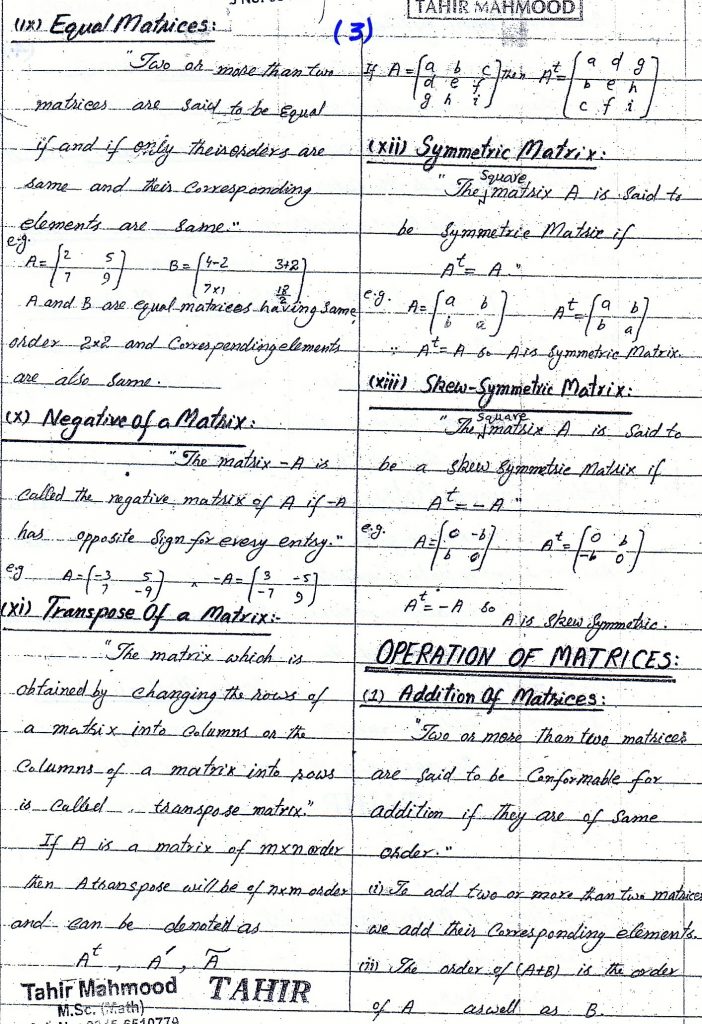 TAHIR MAHMOOD
(3)
(ix) Equal Matrices:
"Two or more than two
matrices are said to be Equal
if and if only their orders are
same and their Corresponding
elements are same."
e.g.
A = [2 5
7 9] B = [4-2 3+2
7x1 18/2]
A and B are equal matrices having same
order 2x2 and Corresponding elements
are also same.
(x) Negative of a Matrix:
"The matrix -A is
called the negative matrix of A if -A
has opposite sign for every entry."
e.g A = [-3 5
7 -9] , -A = [3 -5
-7 9]
(xi) Transpose Of a Matrix:-
"The matrix which is
obtained by changing the rows of
a matrix into Columns or the
Columns of a matrix into rows
is Called transpose matrix."
If A is a matrix of mxn order
then A transpose will be of nxm order
and can be denoted as
Aᵗ , A′ , Ã
Tahir Mahmood TAHIR
M.Sc. (Math)
If A = [a b c
d e f
g h i] then Aᵗ = [a d g
b e h
c f i]
(xii) Symmetric Matrix:
"The Square matrix A is Said to
be Symmetric Matrix if
Aᵗ = A."
e.g. A = [a b
b a] Aᵗ = [a b
b a]
∵ Aᵗ = A so A is Symmetric Matrix.
(xiii) Skew-Symmetric Matrix:
"The square matrix A is Said to
be a Skew Symmetric Matrix if
Aᵗ = -A"
e.g. A = [0 -b
b 0] Aᵗ = [0 b
-b 0]
Aᵗ = -A so
A is Skew Symmetric.
OPERATION OF MATRICES:
(1) Addition Of Matrices:
"Two or more than two matrices
are said to be Conformable for
addition if they are of same
order."
(i) To add two or more than two matrices
we add their Corresponding elements.
(ii) The order of (A+B) is the order
of A as well as B.